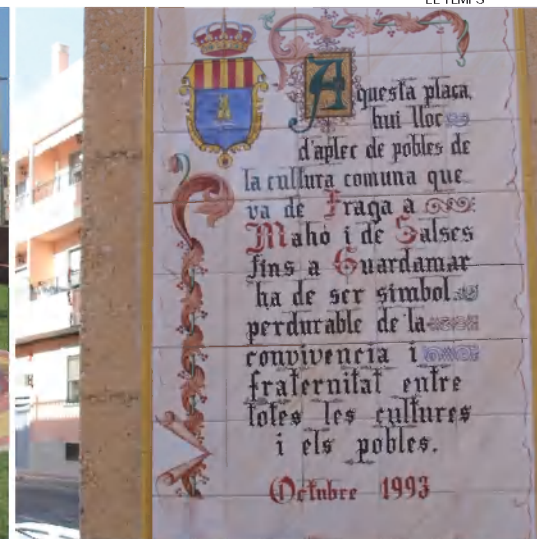 EL TEMPS
Aquesta plaça,
hui lloc
d'aplec de pobles de
la cultura comuna que
va de Fraga a
Mahó i de Salses
fins a Guardamar
ha de ser símbol
perdurable de la
convivència i
fraternitat entre
totes les cultures
i els pobles.
Octubre 1993